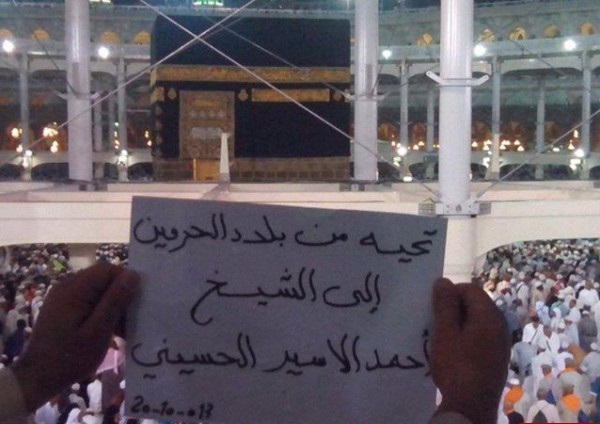 تحيه من بلاد الحرمين
إلى الشيخ
أحمد الاسير الحسيني
20-10-013